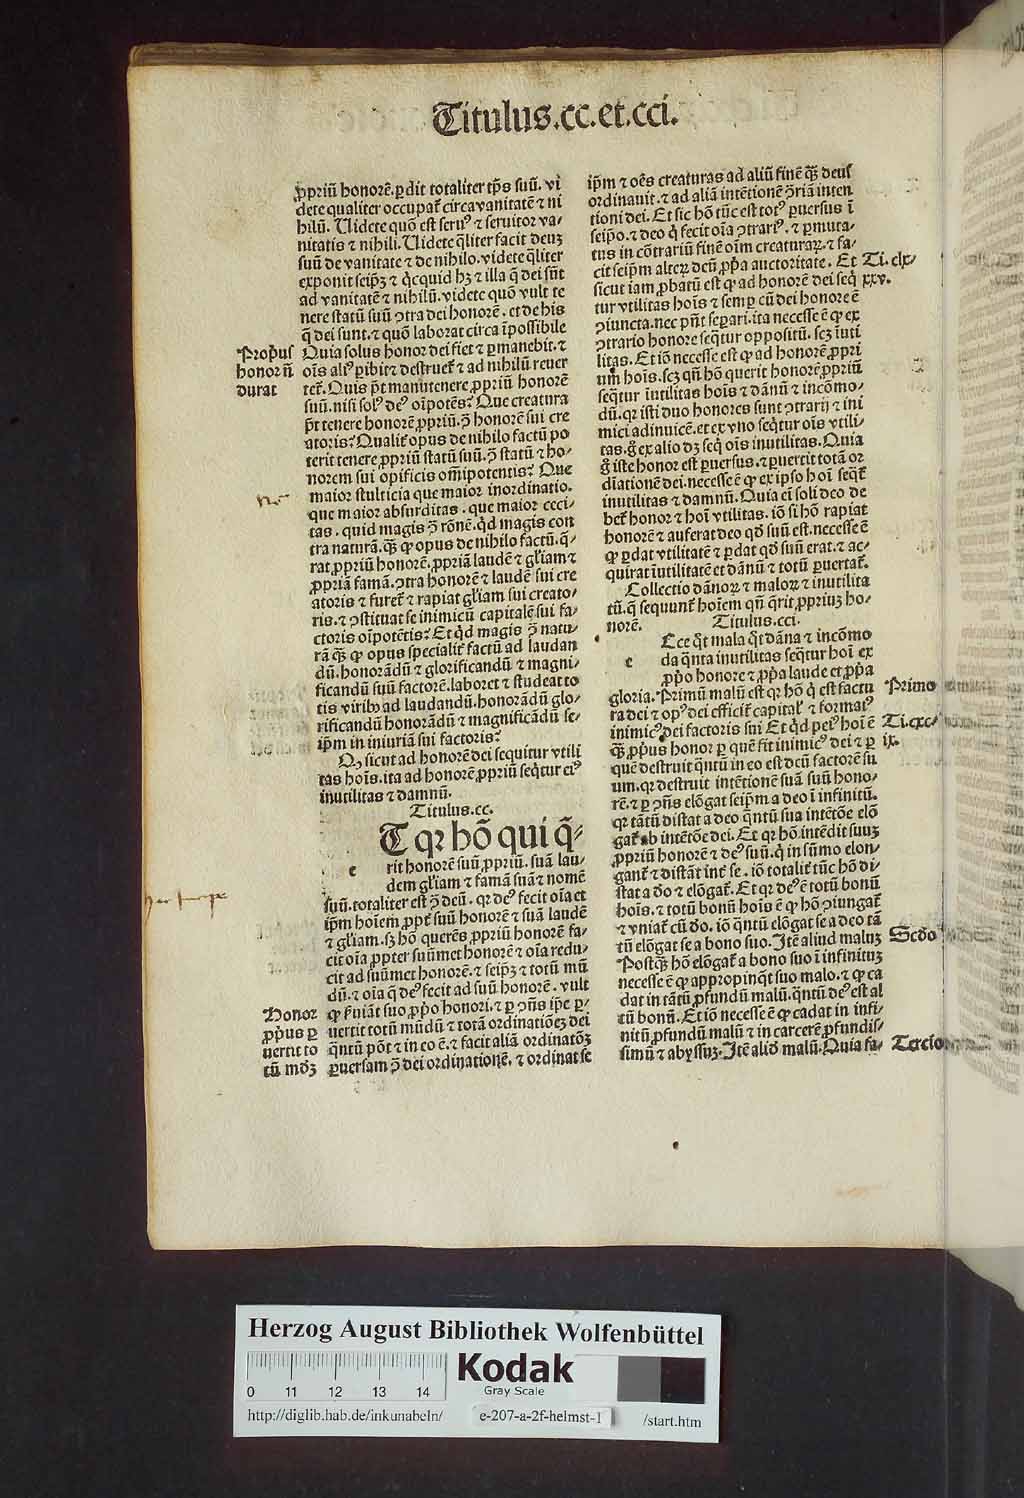 Titulus.cc.et.cci.
ꝓpriũ honorẽ.ꝑdit totaliter tꝑs suũ. vi
dete qualiter occupat̃ circa vanitatẽ ⁊ ni
hilũ. Uidete quõ est seruꝰ ⁊ seruitor va-
nitatis ⁊ nihili. Uidete q̃liter facit deuꝫ
suũ de vanitate ⁊ de nihilo. videte q̃liter
exponit seipꝫ ⁊ q̇cquid hꝫ ⁊ illa q̃ dei sũt
ad vanitatẽ ⁊ nihilũ. videte quõ vult te
nere statũ suũ ↄtra dei honorẽ. et de his
q̃ dei sunt. ⁊ quõ laborat circa ĩpossibile
Quia solus honor dei fiet ⁊ ꝑmanebit. ⁊
oĩs aliꝰ ꝑibit ⁊ destruet̃ ⁊ ad nihilũ reuer
tet̃. Quis põt manutenere ꝓpriũ honorẽ
suũ. nisi solꝰ deꝰ oĩpotẽs? Que creatura
põt tenere honorẽ ꝓpriũ. ↄ̃ honorẽ sui cre
atoris? Qualit̃ opus de nihilo factũ po
terit tenere ꝓpriũ statũ suũ. ↄ̃ statũ ⁊ ho-
norem sui opificis om̃ipotentis? Que
maior stulticia que maior inordinatio.
que maior absurditas. que maior ceci-
tas. quid magis ↄ̃ rõnẽ. q̇d magis con
tra naturã. q̃ꝫ ꝙ opus de nihilo factũ. q̃-
rat ꝓpriũ honorẽ. ꝓpriã laudẽ ⁊ gl̃iam ⁊
ꝓpriã famã. ↄtra honorẽ ⁊ laudẽ sui cre
atoris ⁊ furet̃ ⁊ rapiat gl̃iam sui creato-
ris. ⁊ ↄstituat se inimicũ capitalẽ sui fa-
ctoris oĩpotẽtis? Et q̇d magis ↄ̃ natu-
rã q̃ꝫ ꝙ opus specialit̃ factũ ad laudan
dũ. honorãdũ ⁊ glorificandũ ⁊ magni-
ficandũ suũ factorẽ. laboret ⁊ studeat to
tis viribꝰ ad laudandũ. honorãdũ glo-
rificandũ honorãdũ ⁊ magnificãdũ se-
ip̃m in iniuriã sui factoris?
Qꝫ sicut ad honorẽ dei sequitur vtili
tas hoĩs. ita ad honorẽ ꝓpriũ seq̃tur eiꝰ
inutilitas ⁊ damnũ.
Titulus.cc.
ET qꝛ hõ qui q̃-
rit honorẽ suũ ꝓpriũ. suã lau-
dem gl̃iam ⁊ famã suã ⁊ nomẽ
suũ. totaliter est ↄ̃ deũ. qꝛ deꝰ fecit oĩa et
ip̃m hoĩem ꝓpt̃ suũ honorẽ ⁊ suã laudẽ
⁊ gl̃iam. sꝫ hõ querẽs ꝓpriũ honorẽ fa-
cit oĩa ꝓpter suũmet honorẽ ⁊ oĩa redu-
cit ad suũmet honorẽ. ⁊ seipꝫ ⁊ totũ mũ
dũ. ⁊ oĩa q̃ deꝰ fecit ad suũ honorẽ. vult
ꝙ ẽuiãt suo ꝓp̃o honori. ⁊ ꝑ ↄñs ip̃e ꝑ-
uertit totũ mũdũ ⁊ totã ordinatiõeꝫ dei
q̃ntũ põt ⁊ in eo ẽ. ⁊ facit aliã ordinatõꝫ
ꝑuersam ↄ̃ dei ordinationẽ. ⁊ ordinat se
Prop̃us
honor ñ
durat
Honor
ꝓp̃us ꝑ
uertit to
tũ mũdꝫ
ip̃m ⁊ oẽs creaturas ad aliũ finẽ q̃ꝫ deus
ordinauit. ⁊ ad aliã intẽtionẽ ↄ̃riã inten
tioni dei. Et sic hõ tũc est totꝰ ꝑuersus ĩ
seip̃o. ⁊ deo q̇ fecit oĩa ↄtrariꝰ. ⁊ ꝑmuta-
tus in cõtrariũ finẽ oĩm creaturaꝝ. ⁊ fa-
cit seip̃m alteꝝ deũ ꝓp̃a auctoritate. Et
sicut iam ꝓbatũ est ꝙ ad honorẽ dei seq̇
tur vtilitas hoĩs ⁊ semꝑ cũ dei honore ẽ
ↄiuncta. nec pñt seꝑari. ita necesse ẽ ꝙ ex
ↄtrario honore seq̃tur oppositũ. scꝫ ĩuti
litas. Et iõ necesse est ꝙ ad honorẽ ꝓpri
um hoĩs. scꝫ qñ hõ querit honorẽ ꝓpriũ
seq̃tur ĩutilitas hoĩs ⁊ dãnũ ⁊ incõmo-
dũ. qꝛ isti duo honores sunt ↄtrarij ⁊ ini
mici adinuicẽ. et ex vno seq̃tur oĩs vtili-
tas. g̊ ex alio dꝫ seq̇ oĩs inutilitas. Quia
g̊ iste honor est ꝑuersus. ⁊ ꝑuertit totã or
dĩationẽ dei. necesse ẽ ꝙ ex ipso hoĩ seq̃t̃
inutilitas ⁊ damnũ. Quia eĩ soli deo de
bet̃ honor ⁊ hoĩ vtilitas. iõ si hõ rapiat
honorẽ ⁊ auferat deo qd̃ suũ est. necesse ẽ
ꝙ ꝑdat vtilitatẽ ⁊ ꝑdat qd̃ suũ erat. ⁊ ac-
quirat ĩutilitatẽ et dãnũ ⁊ totũ ꝑuertat̃.
Collectio dãnoꝝ ⁊ maloꝝ ⁊ inutilita
tũ. q̃ sequunt̃ hoĩem qñ q̃rit ꝓpriuꝫ ho-
norẽ. Titulus.cci.
Ecce q̃t mala q̃t dãna ⁊ incõmo
da q̃nta inutilitas seq̃tur hoĩ ex
ꝓp̃o honore ⁊ ꝓp̃a laude et ꝓp̃a
gloria. Primũ malũ est qꝛ hõ q̇ est factu
ra dei ⁊ opꝰ dei efficit̃ capital̃ ⁊ formaĩꝰ
inimicꝰ dei factoris sui Et q̇d peiꝰ hoĩ ẽ
q̃ꝫ ꝓp̃us honor ꝑ quẽ fit inimicꝰ dei ⁊ ꝑ
quẽ destruit q̃ntũ in eo est deũ factorẽ su
um. qꝛ destruit intẽtionẽ suã suũ hono-
rẽ. ⁊ ꝑ ↄñs elõgat seip̃m a deo ĩ infinitũ.
qꝛ tãtũ distat a deo q̃ntũ sua intẽtõe elõ
gat̃ ab intẽtõe dei. Et qꝛ hõ intẽdit suuꝫ
ꝓpriũ honorẽ ⁊ deꝰ suũ. q̇ in sũmo elon-
gant̃ ⁊ distãt int̃ se. iõ totalit̃ tũc hõ di-
stat a dõ ⁊ elõgat̃. Et qꝛ deꝰ ẽ totũ bonũ
hoĩs. ⁊ totũ bonũ hoĩs ẽ ꝙ hõ ↄiungat̃
⁊ vniat̃ cũ dõ. iõ q̃ntũ elõgat se a deo tã
tũ elõgat se a bono suo. Itẽ aliud maluꝫ
Postq̃ꝫ hõ elõgat̃ a bono suo ĩ infinituꝫ
necesse ẽ ꝙ appropinq̃t suo malo. ⁊ ꝙ ca
dat in tãtũ ꝓfundũ malũ. q̃ntũ deꝰ est al
tũ bonũ. Et iõ necesse ẽ ꝙ cadat in infi-
nitũ ꝓfundũ malũ ⁊ in carcerẽ ꝓfundis-
simũ ⁊ abyssuꝫ. Itẽ aliḋ malũ. Quia fa-
Ti. clx-
xxv.
Primo
Ti. cxc-
ix.
Scḋo
Tercio
Herzog August Bibliothek Wolfenbüttel
0 11 12 13 14
Kodak
Gray Scale
http://diglib.hab.de/inkunabeln/ e-207-a-2f-helmst-1 /start.htm